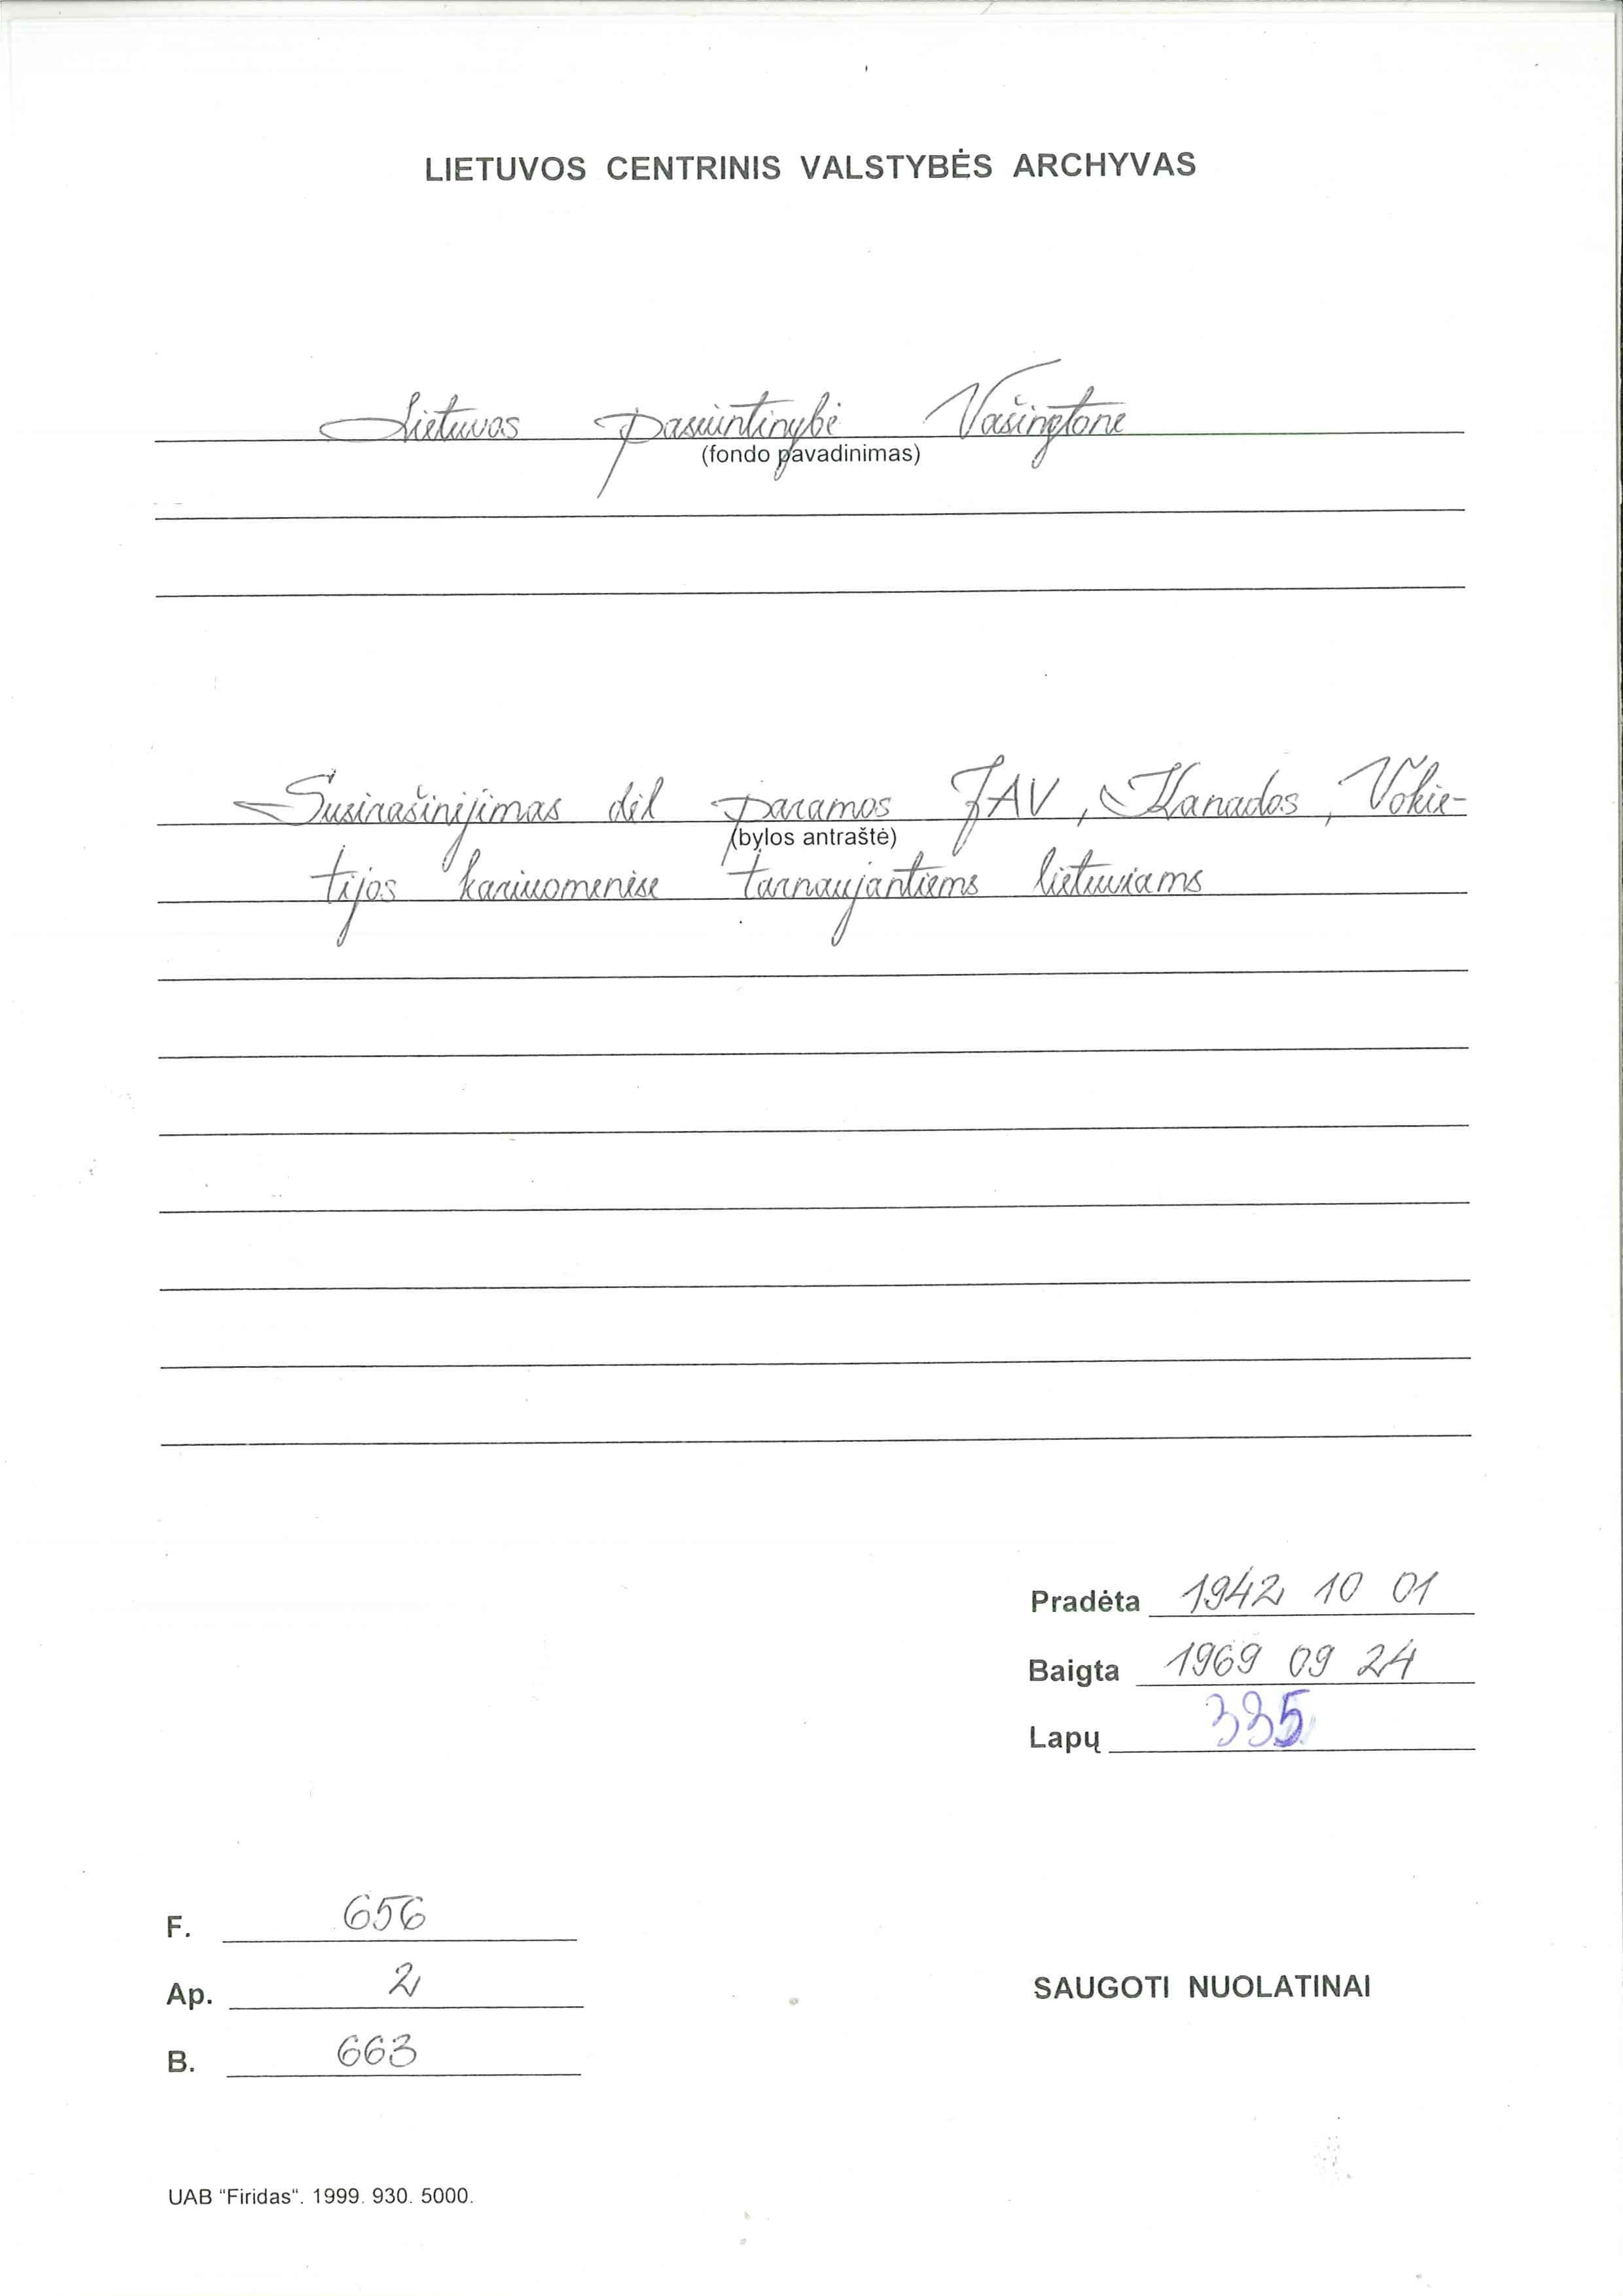 LIETUVOS CENTRINIS VALSTYBĖS ARCHYVAS
Lietuvos pasiuntinybė Vašingtone
(fondo pavadinimas)
Susirašinėjimas dėl paramos JAV, Kanados, Vokie-
(bylos antraštė)
tijos kariuomenėse tarnaujantiems lietuviams
Pradėta 1942 10 01
Baigta 1969 09 24
Lapų 335
F. 656
Ap. 2
SAUGOTI NUOLATINAI
B. 663
UAB "Firidas". 1999. 930. 5000.